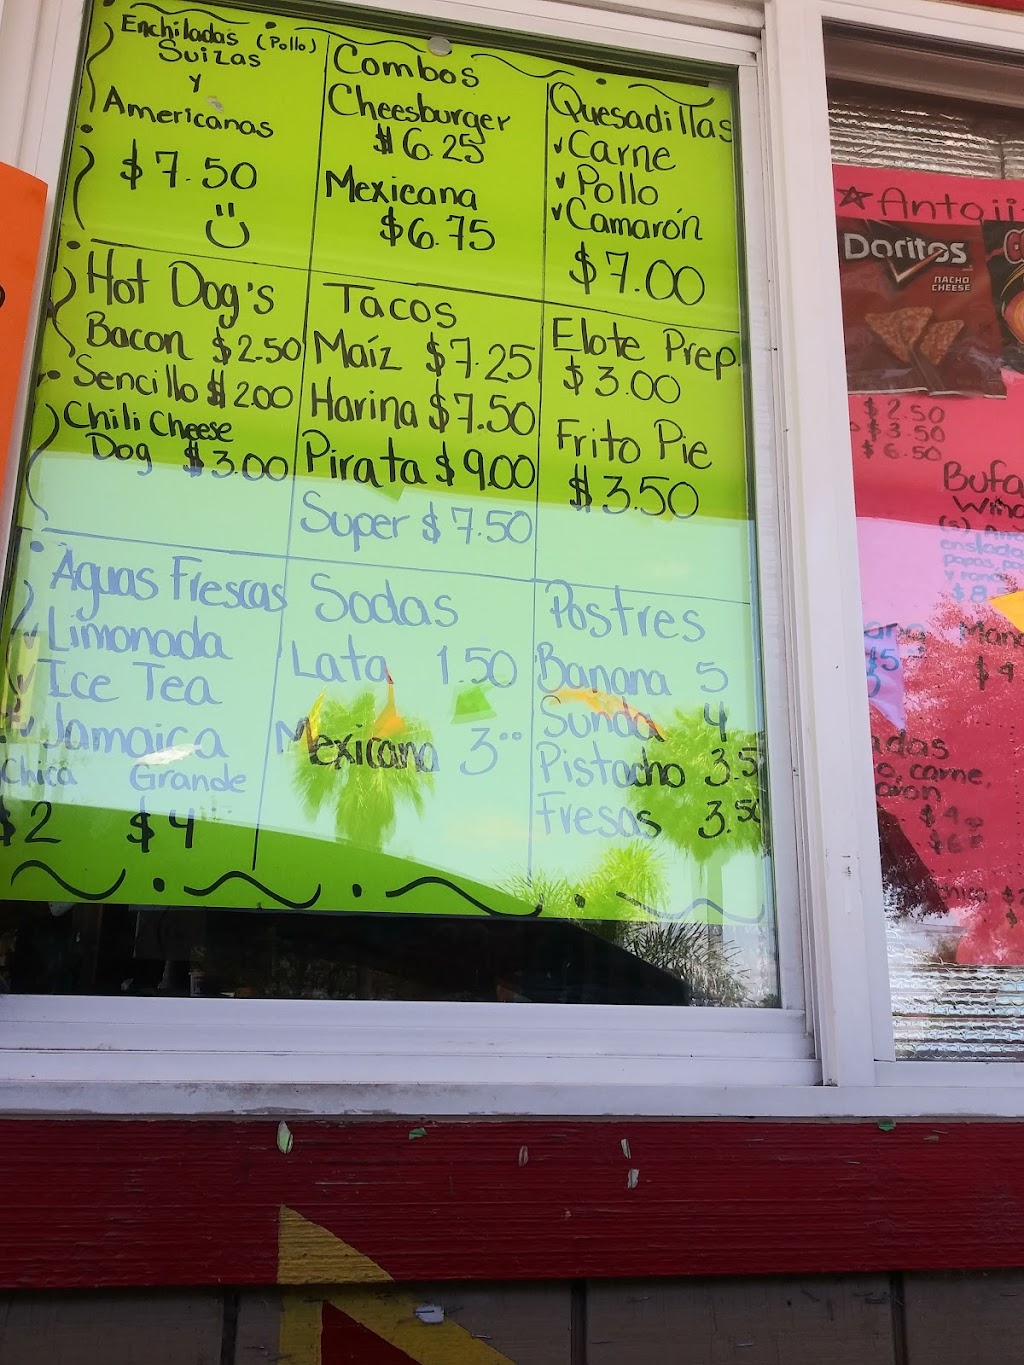 Enchiladas (Pollo)
Suizas
y
Americanas
$7.50
Combos
Cheesburger
$6.25
Mexicana
$6.75
Quesadillas
✓Carne
✓Pollo
✓Camarón
$7.00
Hot Dog's
Bacon $2.50
Sencillo $2.00
Chili Cheese
Dog $3.00
Tacos
Maíz $7.25
Harina $7.50
Pirata $9.00
Super $7.50
Elote Prep.
$3.00
Frito Pie
$3.50
Aguas Frescas
✓Limonada
✓Ice Tea
✓Jamaica
Chica Grande
$2 $4
Sodas
Lata 1.50
Mexicana 3°°
Postres
Banana 5
Sunda 4
Pistacho 3.5
Fresas 3.50
☆Antoji
Doritos
NACHO
CHEESE
$2.50
$3.50
$6.50